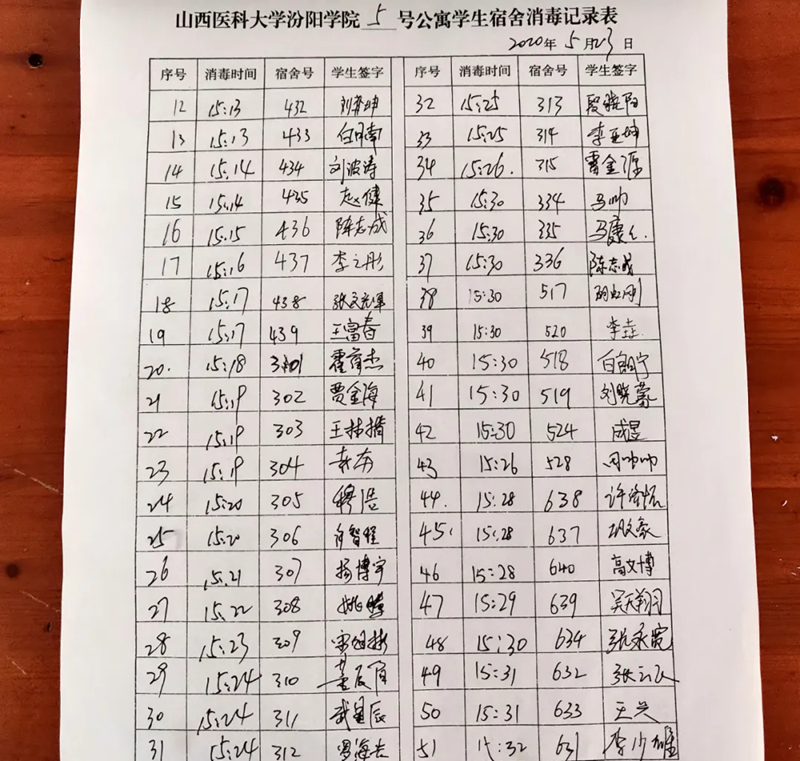 山西医科大学汾阳学院 5 号公寓学生宿舍消毒记录表
2020年 5月23日
序号 消毒时间 宿舍号 学生签字 序号 消毒时间 宿舍号 学生签字
12 15:13 432 32 15:25 313 段晓阳
13 15:13 433 白日南 33 15:25 314 李亚坤
14 15:14 434 刘波涛 34 15:26. 315 雷金源
15 15:14 435 赵健 35 15:30 334 马帅
16 15:15 436 陈志成 36 15:30 335
17 15:16 437 李之彤 37 15:30 336 陈志成
18 15:17 438 38 15:30 517
19 15:17 439 王富春 39 15:30 520 李垚
20. 15:18 301 霍苛杰 40 15:30 518 白朗宁
21 15:19 302 贾金海 41 15:30 519 刘晓蒙
22 15:19 303 42 15:30 524 成昱
23 15:19 304 43 15:26 528 周帅帅
24 15:20 305 穆浩 44. 15:28 638
25 15:20 306 肖智程 45. 15:28 637
26 15:21 307 杨博宇 46 15:28 640 高文博
27 15:22 308 47 15:29 639 吴天翔
28 15:23 309 48 15:30 634
29 15:24 310 49 15:31 632
30 15:24 311 武星辰 50 15:31 633 王兴
31 15:24 312 51 15:32 631